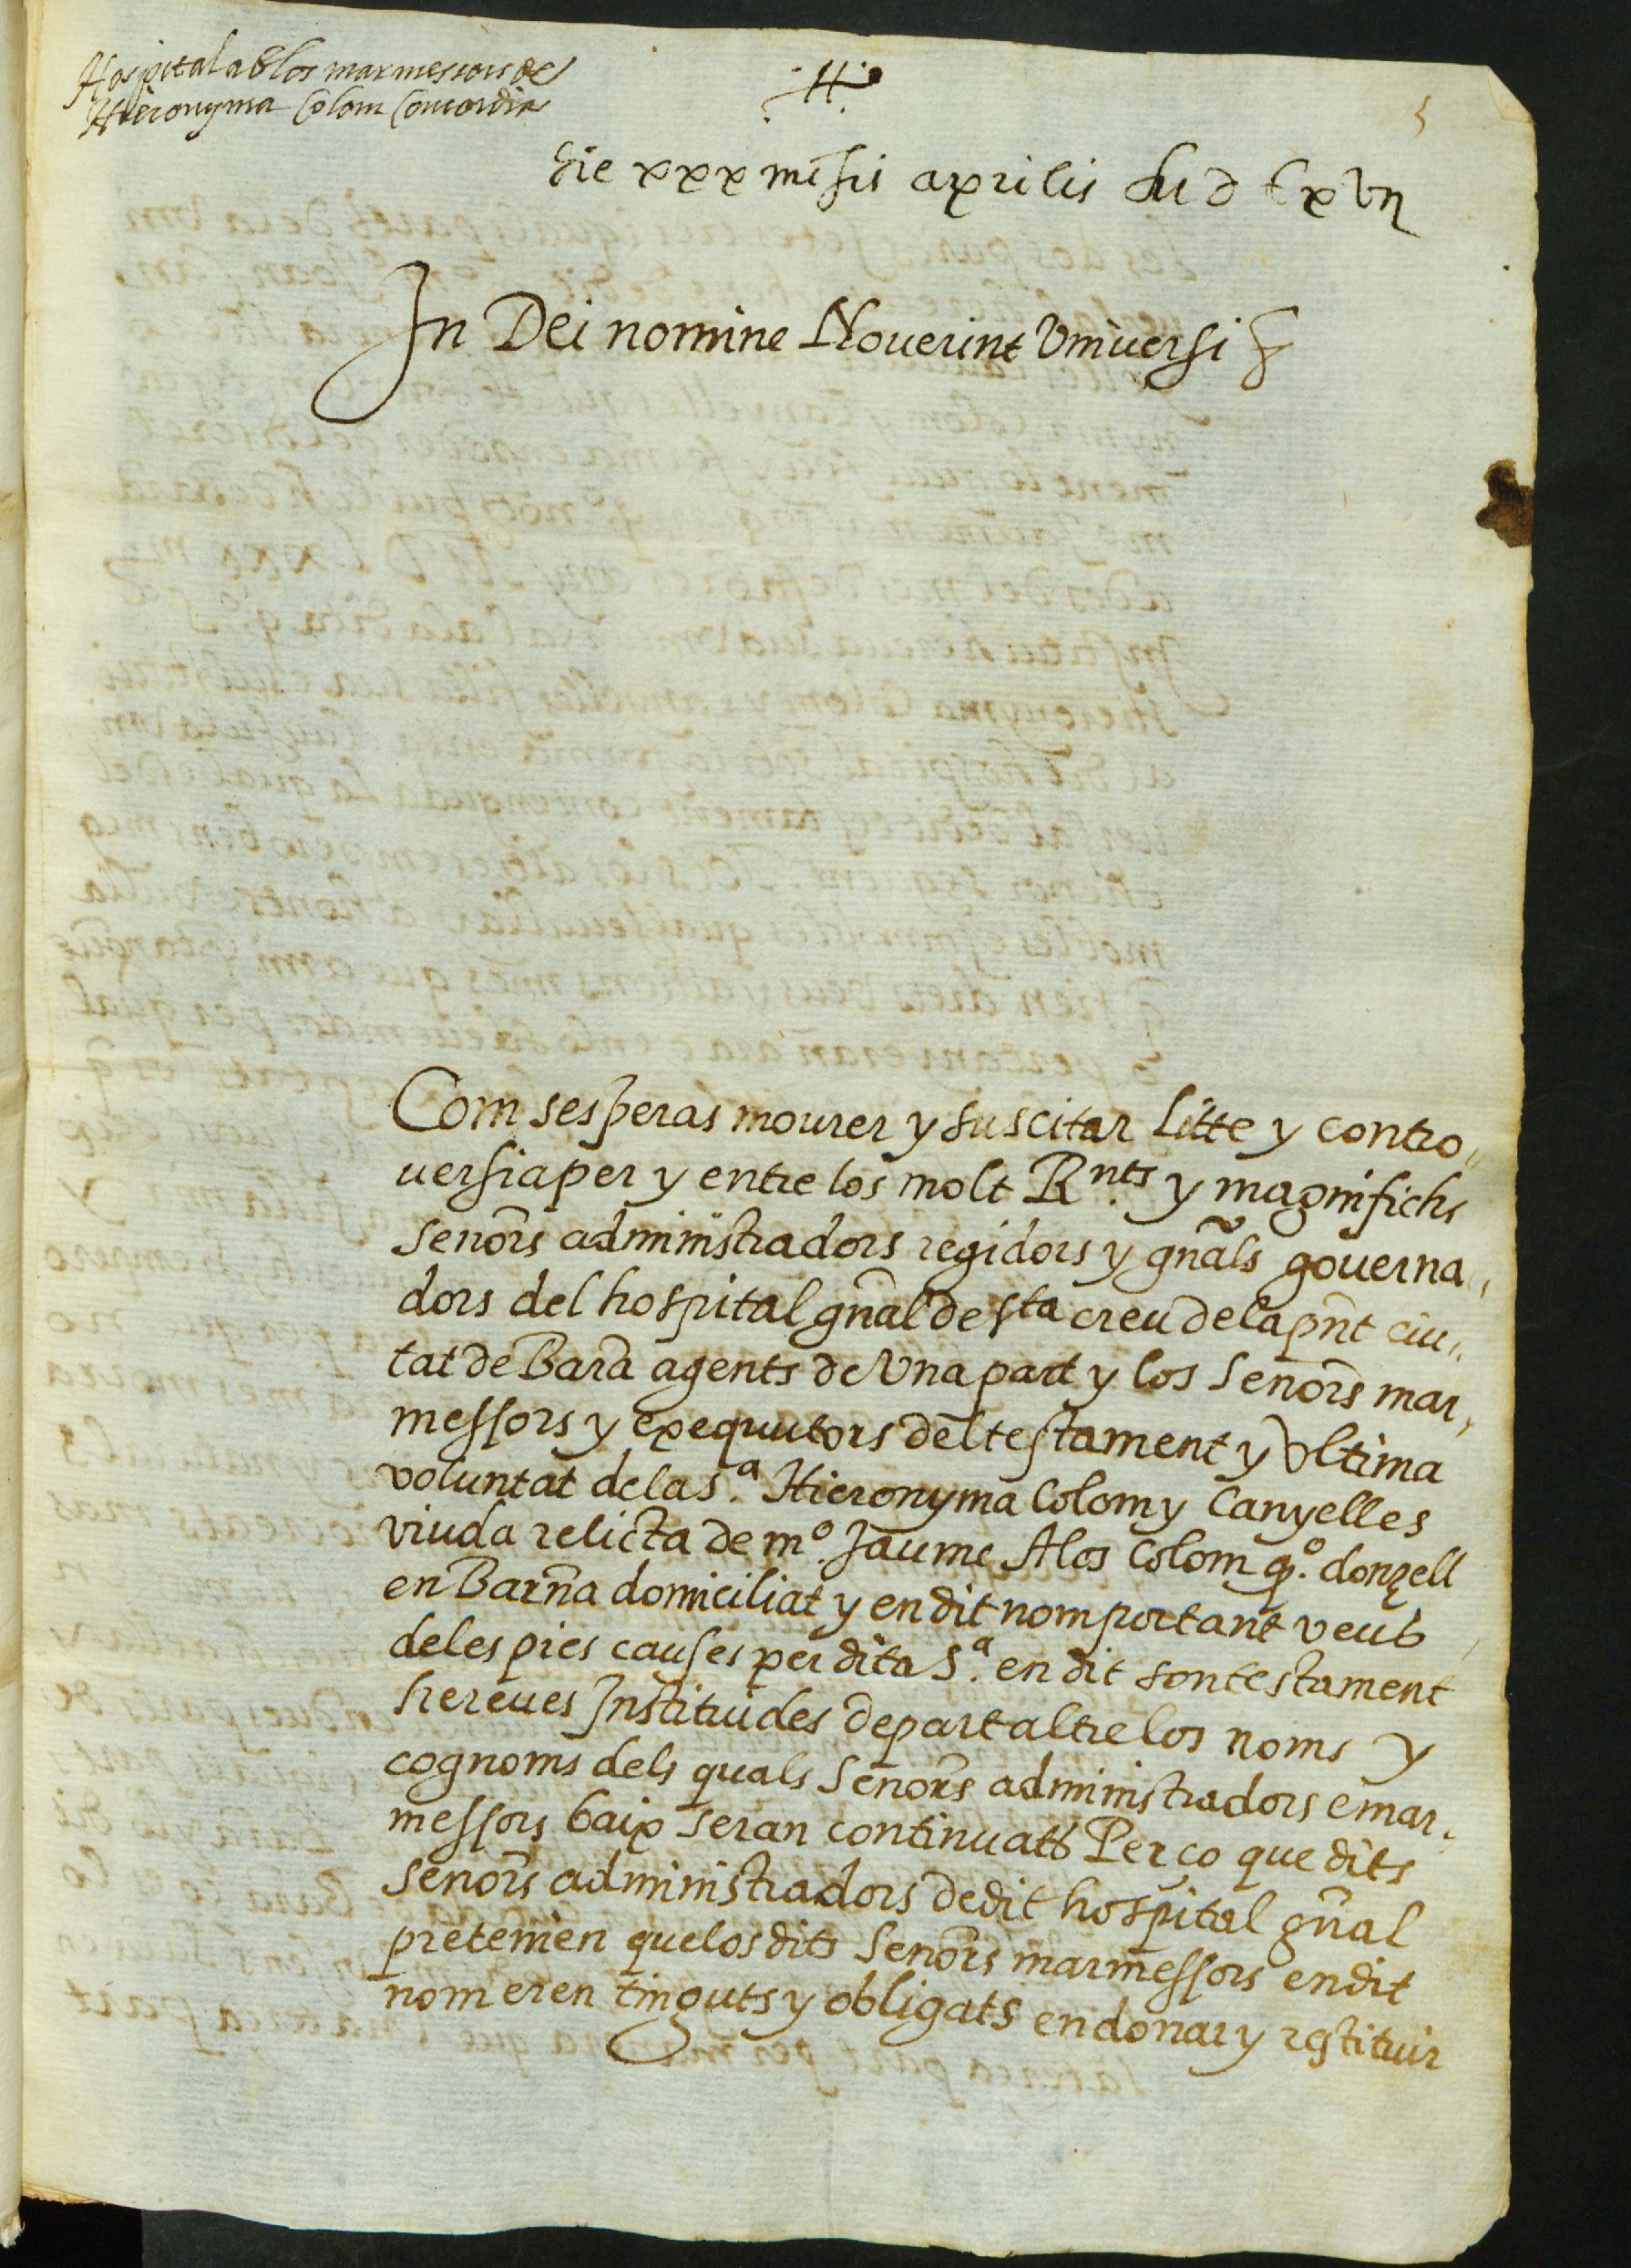 Hospital ab los marmessors de
Hieronyma Colom Concordia
die xxx mēsis aprilis M D Lxvij
In Dei nomine Nouerint Vniuersi
Com sesperas mourer y suscitar litte y contro„
uersia per y entre los molt R.nts y magnifichs
senōrs administradors regidors y gñals gouerna„
dors del hospital gñal de sta creu dela pñt ciu„
tat de Barā agents de Vna part y los Senōrs mar„
messors y exequutors del testament y Vltima
voluntat dela S.ª Hieronyma Colom y Canyelles
viuda relicta de m.º Jaume Alos Colom q.º donzell
en Barña domiciliat y en dit nom portant veus
de les pies causes per dita S.ª en dit son testament
hereues Instituides de part altre los noms y
cognoms dels quals Senōrs administradors e mar„
messors baix seran continuats Per ço que dits
senōrs administradors de dit hospital gñal
pretenien que los dits Senōrs marmessors en dit
nom eren tinguts y obligats en donar y restituir